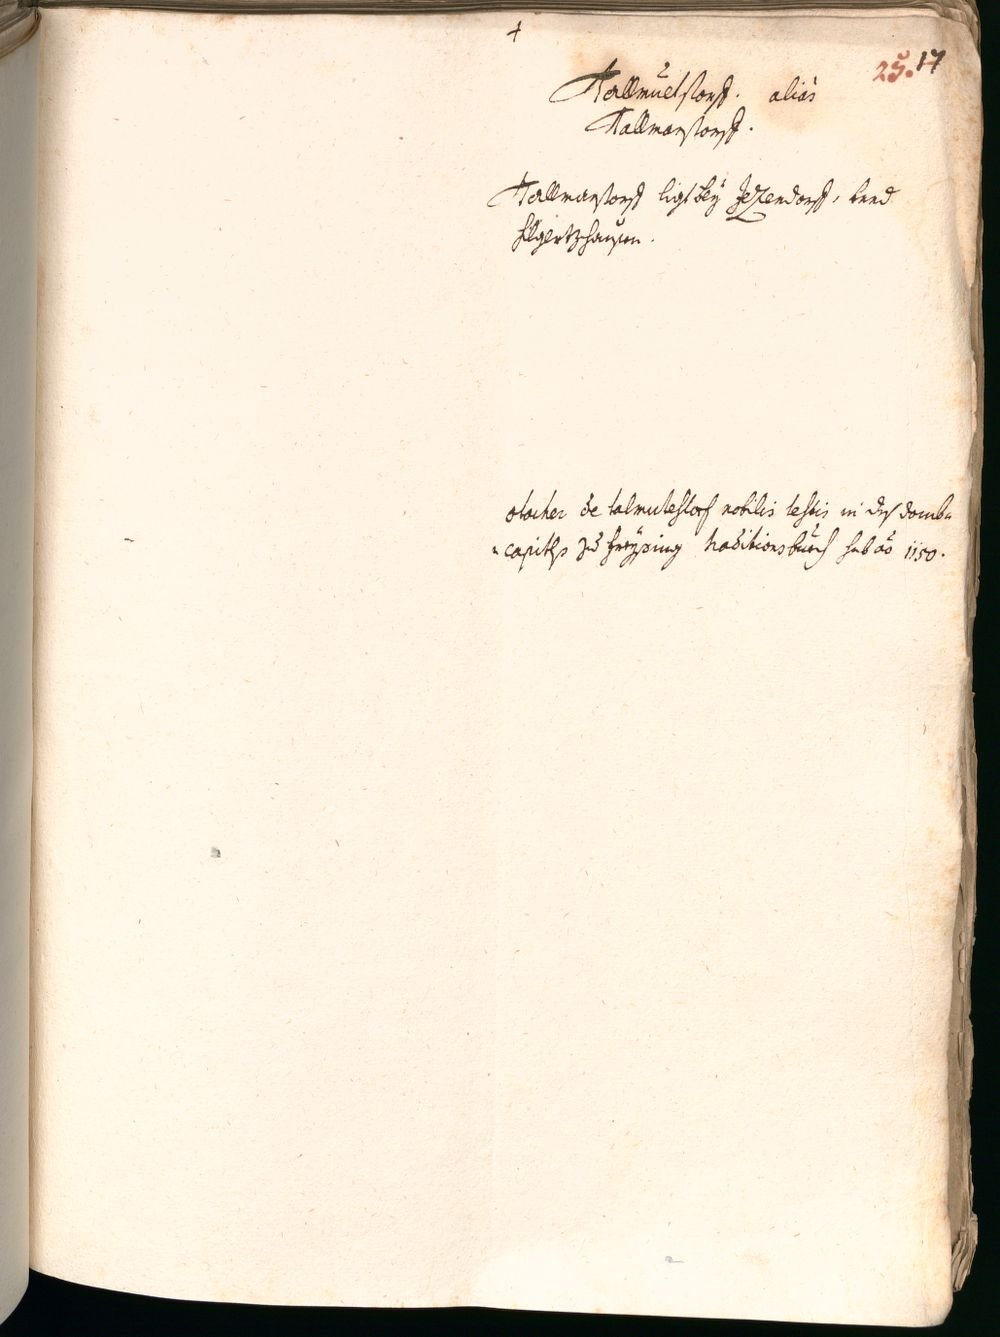 +
25. 17
Tallmüetstorff. alias
Tallmanstorff.
Tallmanstorff ligt beÿ Jezendorff, vnnd
Hilgertzhausen.
otacher de talmutestorf nobilis testis in deß domb-
-capitls zů freÿsing traditionsbuech sub ao 1150.